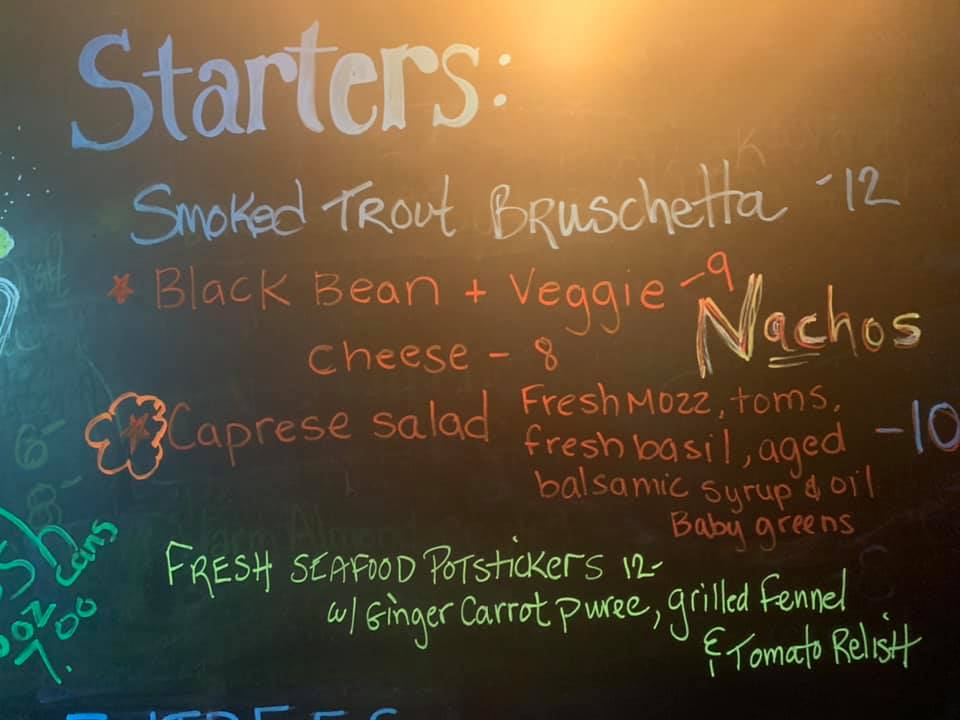 Starters:
Smoked Trout Bruschetta - 12
* Black Bean + Veggie - 9
Cheese - 8
Nachos
* Caprese salad
Fresh Mozz, toms,
fresh basil, aged
balsamic syrup & oil
Baby greens
- 10
FRESH SEAFOOD POTSTICKERS 12-
w/ Ginger Carrot puree, grilled Fennel
& Tomato Relish
cans
7.00